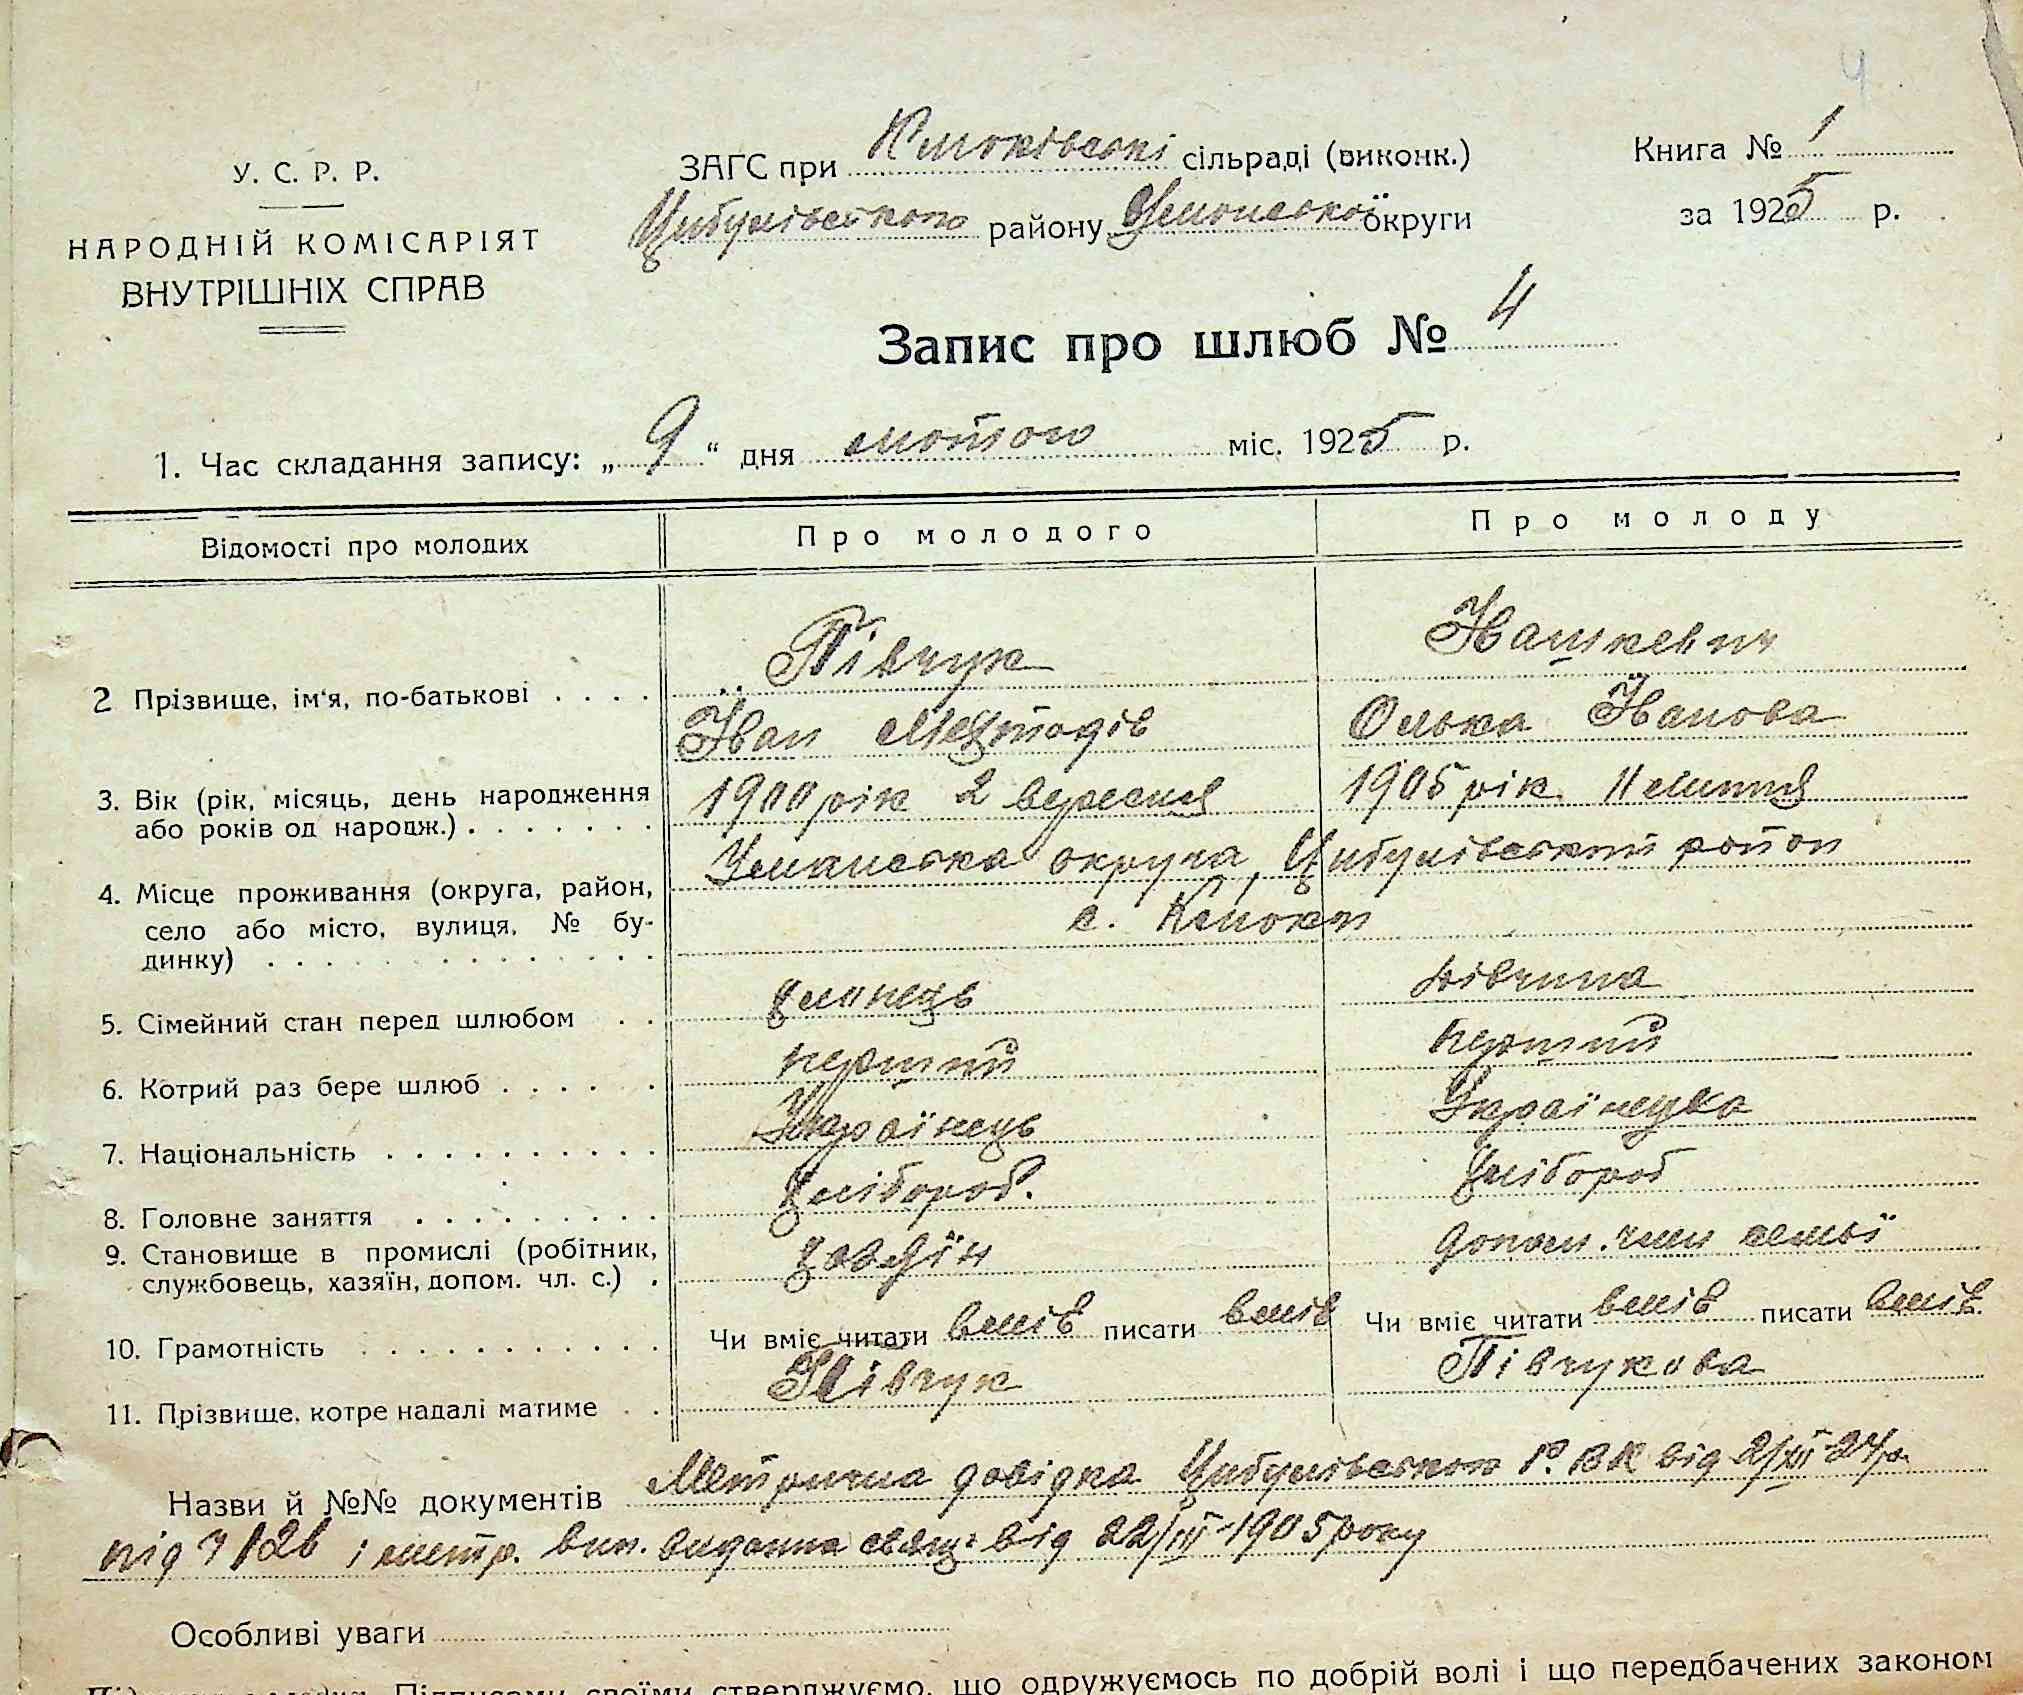 4
У. С. Р. Р.
НАРОДНІЙ КОМІСАРІЯТ
ВНУТРІШНІХ СПРАВ
ЗАГС при Клюківські сільраді (виконк.)
Цибулівського району Уманської округи
Книга № 1
за 1925 р.
Запис про шлюб № 4
1. Час складання запису: „ 9 “ дня лютого міс. 1925 р.
Відомості про молодих Про молодого Про молоду
2 Прізвище, ім‘я, по-батькові . . . .
Півчук
Іван Методів
Нашкевич
Олька Іванова
3. Вік (рік, місяць, день народження
або років од народж.) . . . . . . .
1900 рік 2 вересня 1905 рік 11 липня
4. Місце проживання (округа, район,
село або місто, вулиця, № бу-
динку) . . . . . . . . . . . . . .
Уманська округа, Цибулівський район
с. Клюки
5. Сімейний стан перед шлюбом . . дівчина
6. Котрий раз бере шлюб . . . . . перший перший
7. Національність . . . . . . . . . . Українець Українецка
8. Головне заняття . . . . . . . . . хлібороб. хлібороб
9. Становище в промислі (робітник,
службовець, хазяїн, допом. чл. с.) .
хазяїн допом. член семьї
10. Грамотність . . . . . . . . . . . Чи вміє читати вміє писати вміє Чи вміє читати вміє писати вміє
11. Прізвище, котре надалі матиме . . Півчук Півчукова
Назви й №№ документів Метрична довідка Цибулівського Р.ВК від 2/XII-24 р.
під ч 126 і метр. вип. видана свящ. від 22/III-1905 року
Особливі уваги
Підписами своїми стверджуємо, що одружуємось по добрій волі і що передбачених законом